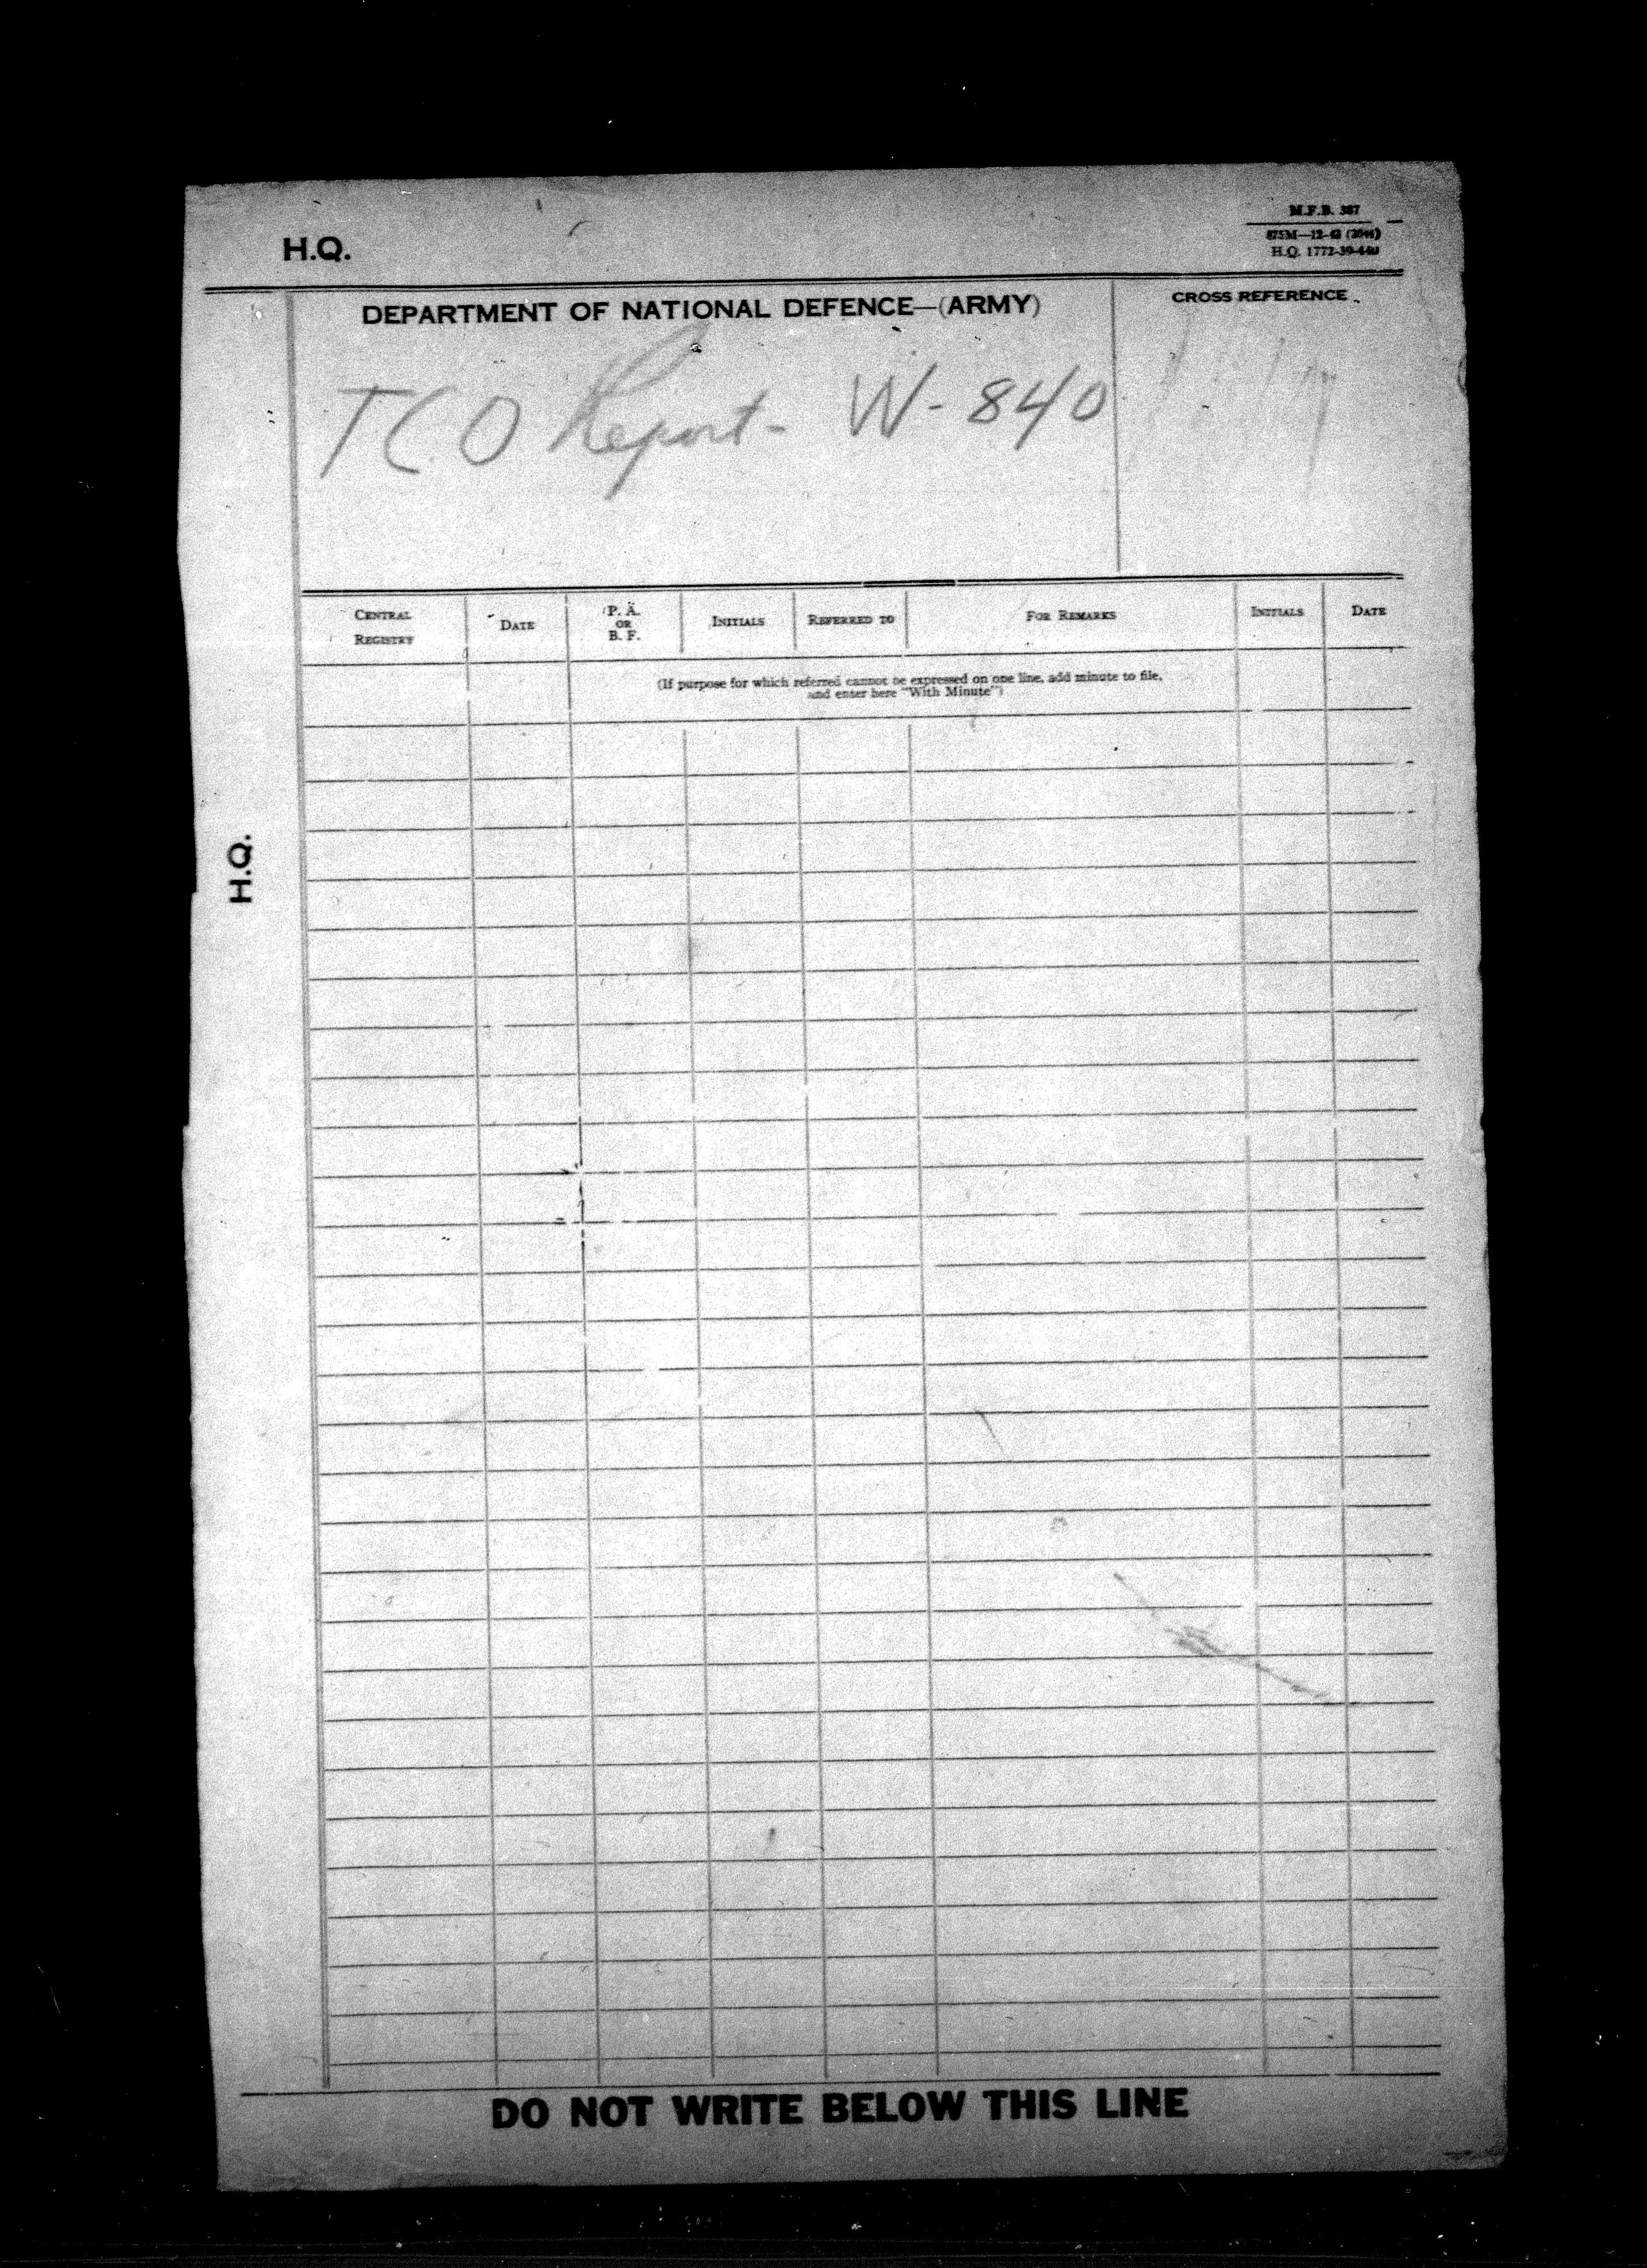 H.Q.
M.F.B. 387
875M—12-42 (2044)
H.Q. 1772-39-440
DEPARTMENT OF NATIONAL DEFENCE—(ARMY)
CROSS REFERENCE
TCO Report - W-840
CENTRAL REGISTRY
DATE
P. A. OR B. F.
INITIALS
REFERRED TO
FOR REMARKS
INITIALS
DATE
(If purpose for which referred cannot be expressed on one line, add minute to file,
and enter here "With Minute")
H.Q.
DO NOT WRITE BELOW THIS LINE